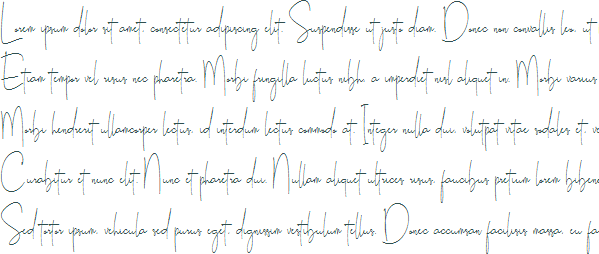 Lorem ipsum dolor sit amet, consectetur adipiscing elit. Suspendisse ut justo diam. Donec non convallis leo, ut
Etiam tempor vel risus nec pharetra. Morbi fringilla luctus nibh, a imperdiet nisl aliquet in. Morbi varius
Morbi hendrerit ullamcorper lectus, id interdum lectus commodo at. Integer nulla dui, volutpat vitae sodales et, ve
Curabitur et nunc elit. Nunc et pharetra dui. Nullam aliquet ultrices risus, faucibus pretium lorem bibend
Sed tortor ipsum, vehicula sed purus eget, dignissim vestibulum tellus. Donec accumsan facilisis massa, eu fa